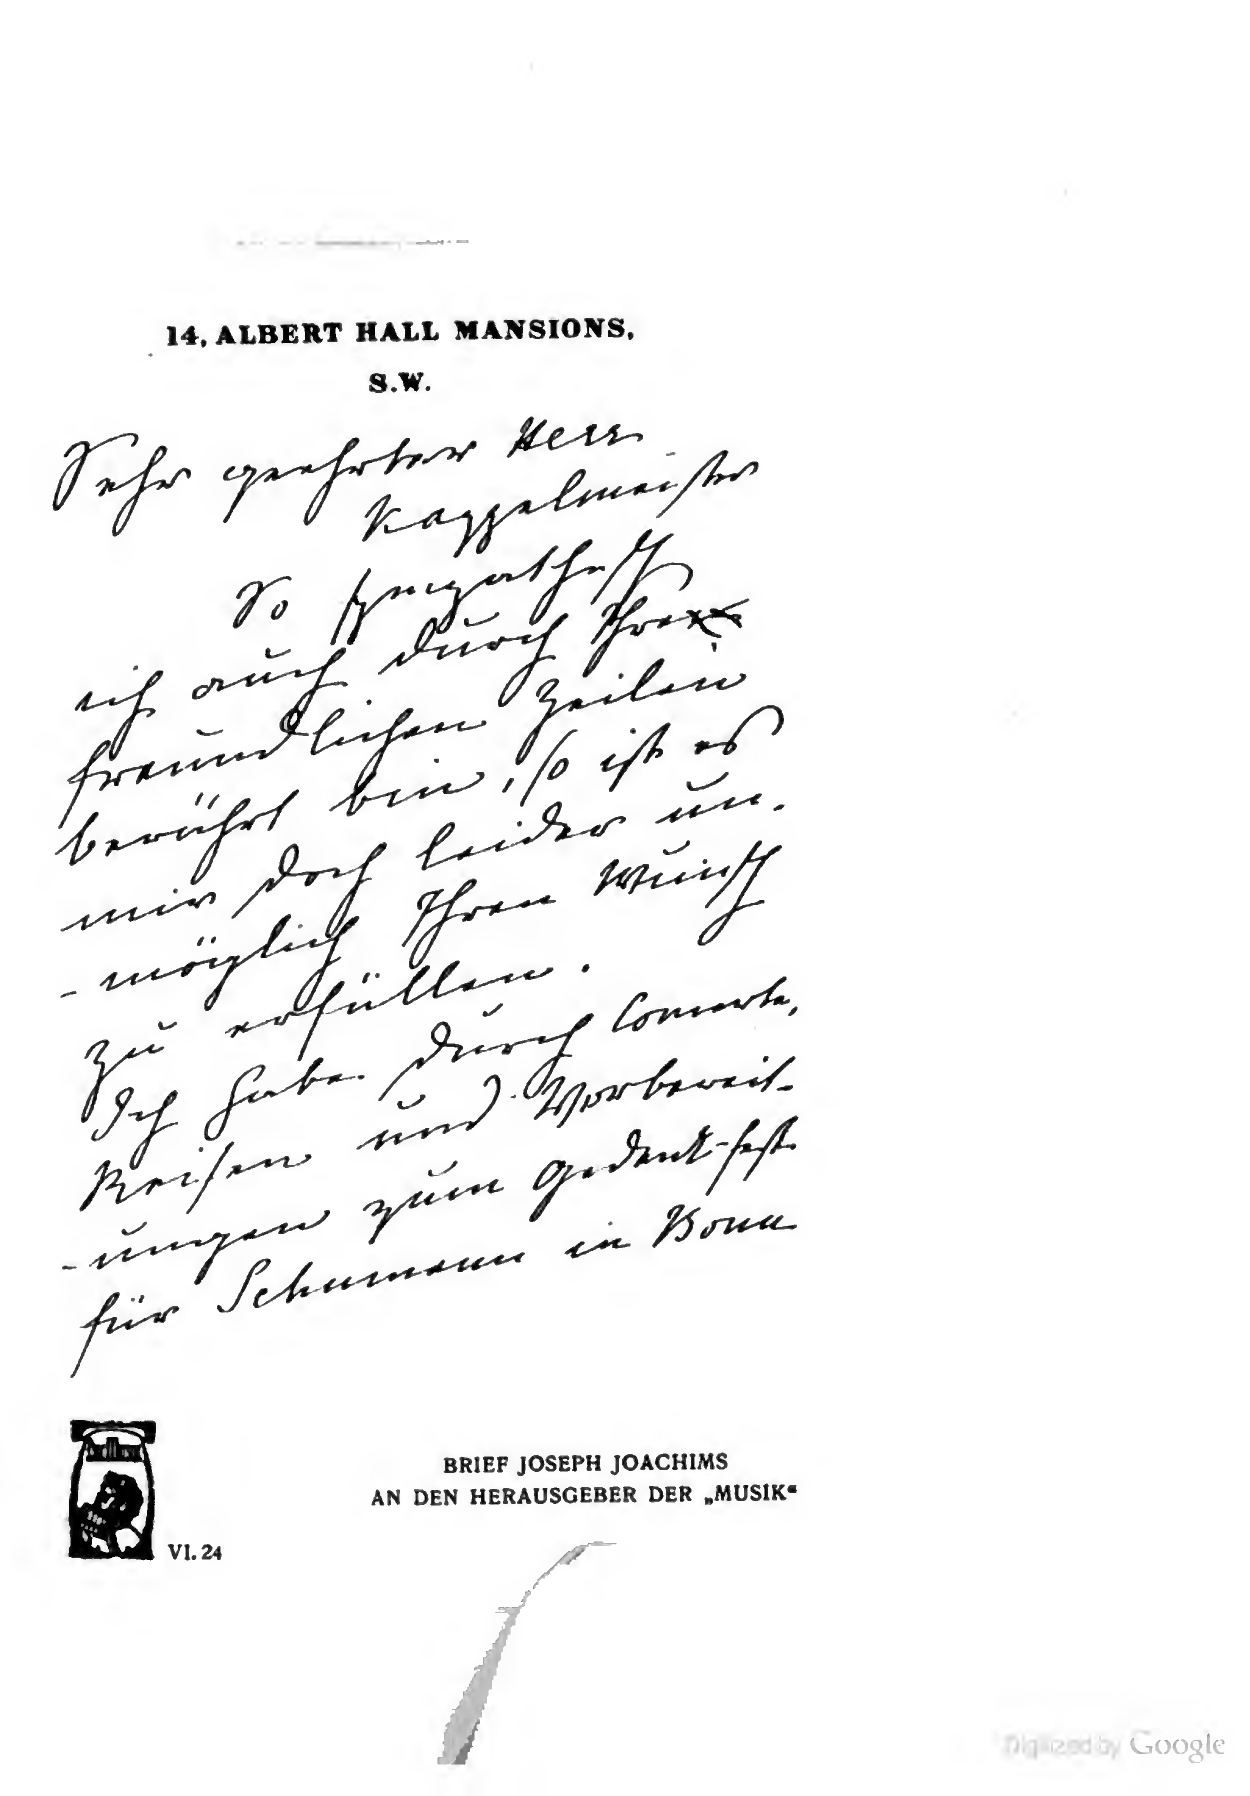 14, ALBERT HALL MANSIONS,
S.W.
Sehr geehrter Herr
Kappelmeister
So sympathisch
ich auch durch Ihre
freundlichen Zeilen
berührt bin, so ist es
mir doch leider un-
-möglich Ihren Wunsch
zu erfüllen.
Ich habe durch Concerte,
Reisen und Vorbereit-
-ungen zum Gedenk-fest
für Schumann in Bonn
BRIEF JOSEPH JOACHIMS
AN DEN HERAUSGEBER DER „MUSIK“
VI. 24
Digitized by Google